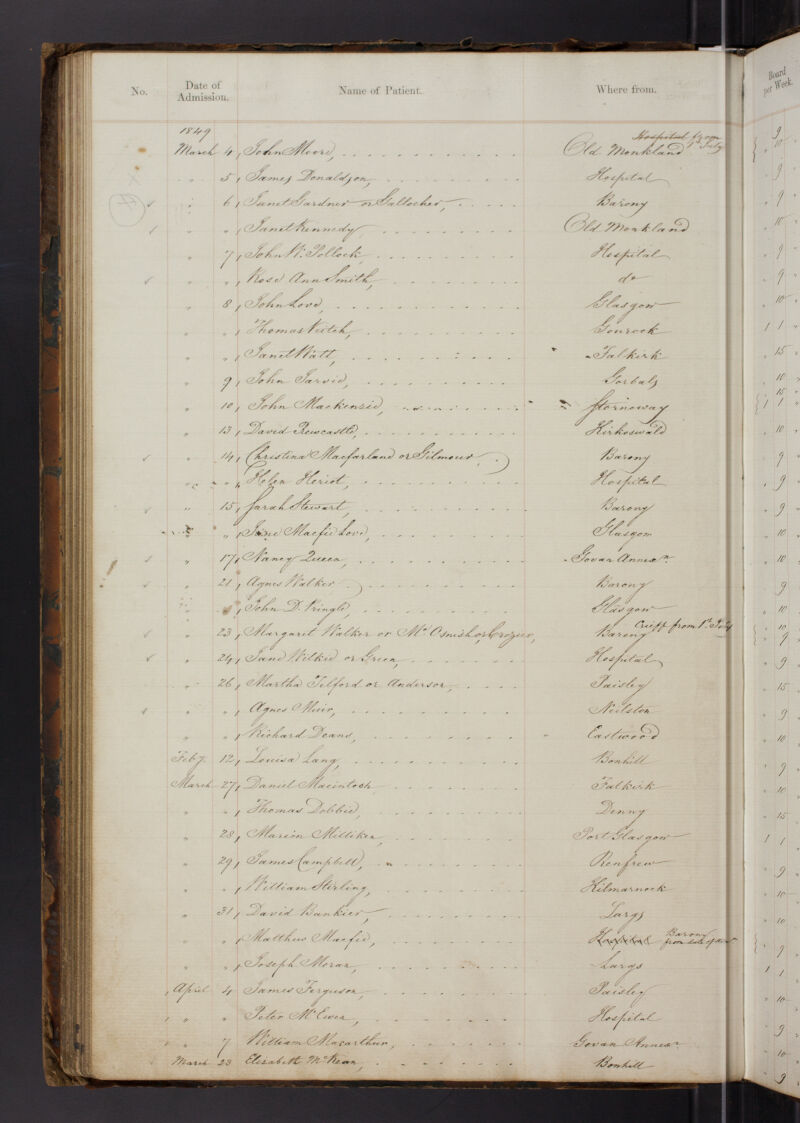 No. Date of Admission. Name of Patient. Where from. Board per Week.
1849
Hospital from
March 4, John Moore, Old Monkland 1st July
" 5, James Donaldson, Hospital
" 6, Janet Gardner or Gallocher, Barony
" " Janet Kennedy, Old Monkland
" 7, John W. Pollock, Hospital
" " Rose Ann Smith, do
" 8, John Love, Glasgow
" " Thomas Veitch, Gourock
" " Janet Watt, Falkirk
" 9, John Jarvie, Gorbals
" 10, John Mackenzie, Stornoway
" 13, David Rowcastle, Kirkoswald
" 14, Christina Macfarland or Gilmour, Barony
" " Helen Heriot, Hospital
" 15, Sarah Stewart, Barony
" " Jane Macfie Love, Glasgow
" 17, Nancy Queen, Govan Annexn.
" 21, Agnes Walker Barony
" " John D. Pringle, Glasgow
" 23, Margaret Walker or Barony Crieff from 1st July
" 24, Jane Wilkie or Green, Hospital
" 26, Martha Telford or Anderson, Paisley
" " Agnes Muir, Neilston
" " Richard Deans, Eastwood
Feby. 12, Louisa Lang, Bonhill
March 27, Daniel Macintosh Falkirk
" " Thomas Dobbie, Denny
" 28, Marion Milliken, Port Glasgow
" 29, James Campbell, Renfrew
" " William Stirling, Kilmarnock
" 31, David Bankier, Largs
" " Matthew Macfie, Hospital Barony from
" " Joseph Moran, Largs
April 4 James Ferguson, Paisley
" " Peter McEwen, Hospital
" 7 William Macarthur, Govan Annexn.
March 23 Elizabeth McKean, Bonhill